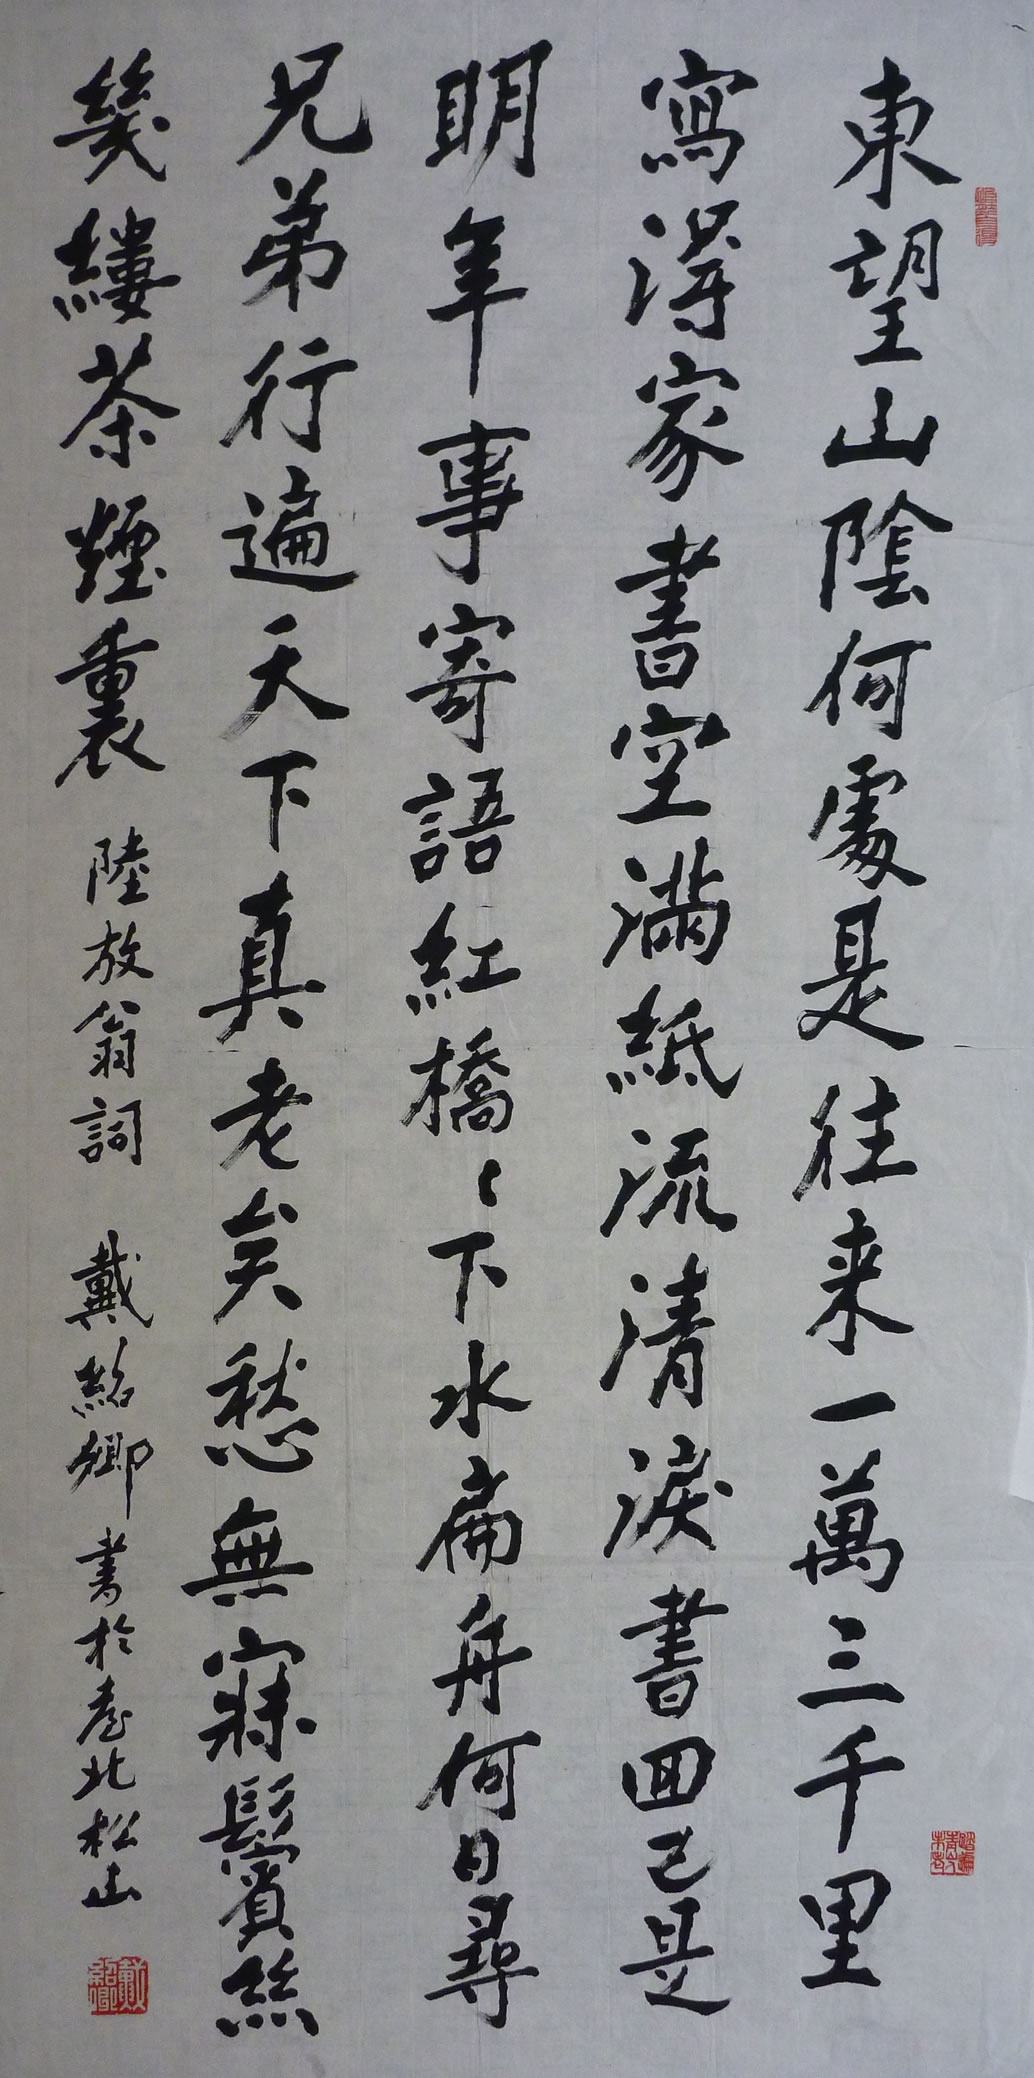 東望山陰何處是往来一萬三千里
寫得家書空滿紙流清淚書回已是
明年事寄語紅橋〻下水扁舟何日尋
兄弟行遍天下真老矣愁無寐鬢絲
幾縷茶煙裏 陸放翁詞 戴紹卿書於臺北松山
戴紹卿